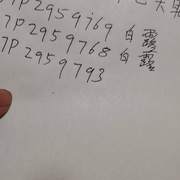 7P2959769 白露
7P2959768 白露
7P2959793